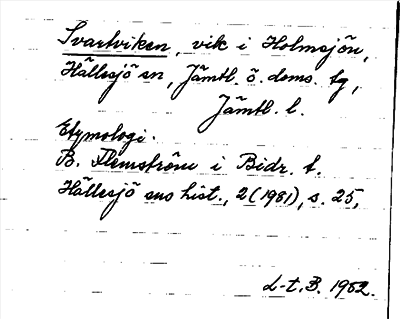 Svartviken, vik i Holmsjön,
Hällesjö sn, Jämtl. ö. doms. tg,
Jämtl. l.
Etymologi.
B. Flemström i Bidr. t.
Hällesjö sns hist., 2 (1981), s. 25,
L-t, B. 1982.